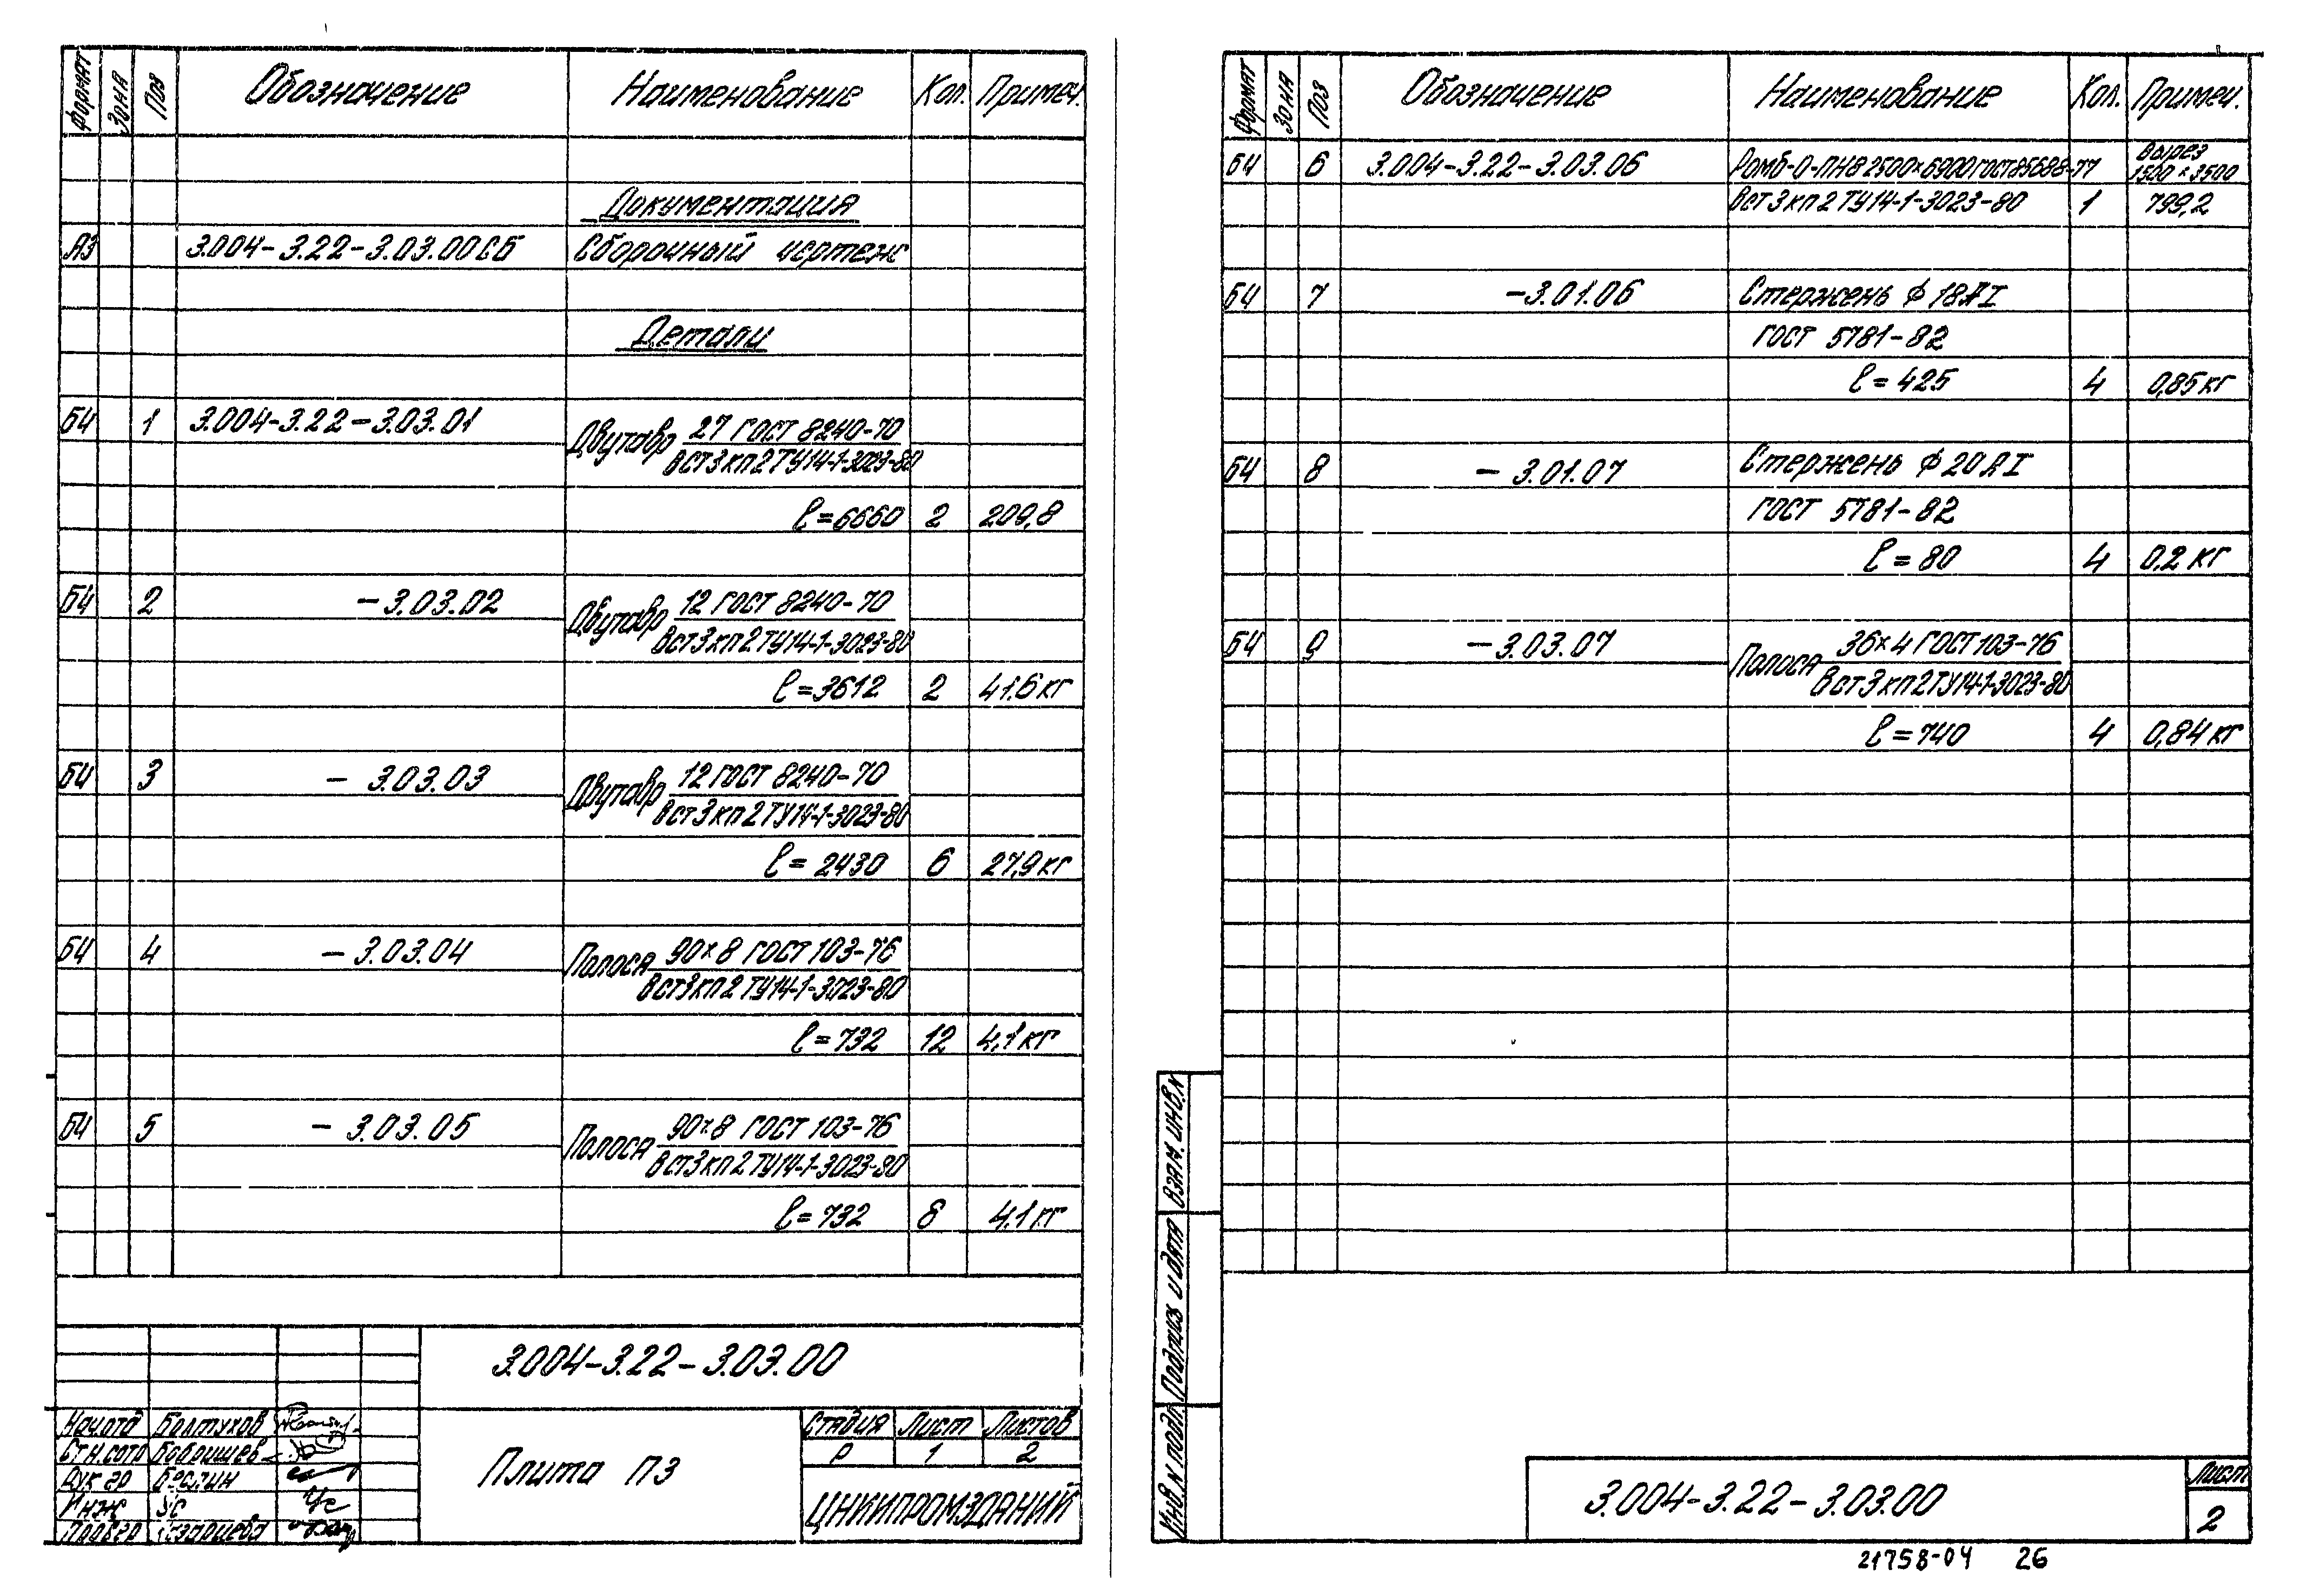 Формат Зона Поз Обозначение Наименование Кол. Примеч.
Документация
А3 3.004-3.22-3.03.00СБ Сборочный чертеж
Детали
БЧ 1 3.004-3.22-3.03.01 Двутавр 27 ГОСТ 8240-70
ВСт3кп2 ТУ14-1-3023-80
ℓ=6660 2 209,8
БЧ 2 -3.03.02 Двутавр 12 ГОСТ 8240-70
ВСт3кп2 ТУ14-1-3023-80
ℓ=3612 2 41.6кг
БЧ 3 - 3.03.03 Двутавр 12 ГОСТ 8240-70
ВСт3кп2 ТУ14-1-3023-80
ℓ=2430 6 27,9кг
БЧ 4 - 3.03.04 Полоса 90×8 ГОСТ 103-76
ВСт3кп2 ТУ14-1-3023-80
ℓ=732 12 4.1кг
БЧ 5 - 3.03.05 Полоса 90×8 ГОСТ 103-76
ВСт3кп2 ТУ14-1-3023-80
ℓ=732 8 4.1кг
3.004-3.22-3.03.00
Нач отд Болтухов
Ст.н.сотр Бобришев
Рук гр Беслин
Инж Ус
Провер
Плита П3
Стадия Лист Листов
Р 1 2
ЦНИИПРОМЗДАНИЙ
Формат Зона Поз Обозначение Наименование Кол. Примеч.
БЧ 6 3.004-3.22-3.03.06 Ромб-О-ПН8 2500×6900 ГОСТ 85688-77 Вырез
1500×3500
ВСт3кп2 ТУ14-1-3023-80 1 799,2
БЧ 7 -3.01.06 Стержень ϕ 18АI
ГОСТ 5781-82
ℓ=425 4 0,85кг
БЧ 8 - 3.01.07 Стержень ϕ 20АI
ГОСТ 5781-82
ℓ=80 4 0.2кг
БЧ 9 -3.03.07 Полоса 36×4 ГОСТ 103-76
ВСт3кп2ТУ14-1-3023-80
ℓ=740 4 0,84кг
Взам. инв.N
Подпись и дата
Инв.N подл.
3.004-3.22-3.03.00
Лист
2
21758-04 26